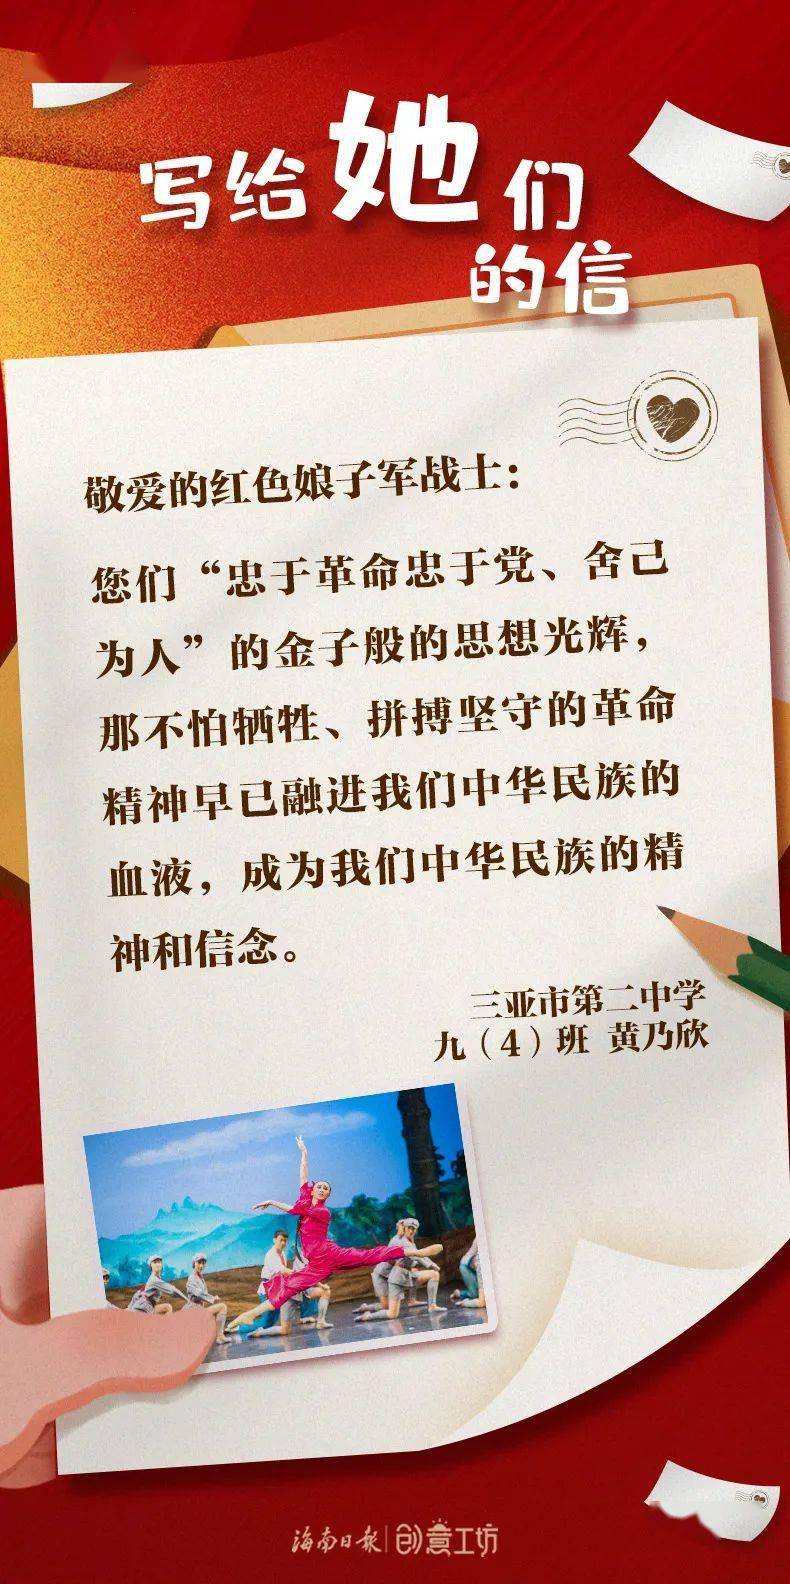 写给她们
的信
敬爱的红色娘子军战士：
您们“忠于革命忠于党、舍己
为人”的金子般的思想光辉，
那不怕牺牲、拼搏坚守的革命
精神早已融进我们中华民族的
血液，成为我们中华民族的精
神和信念。
三亚市第二中学
九（4）班 黄乃欣
海南日报 创意工坊